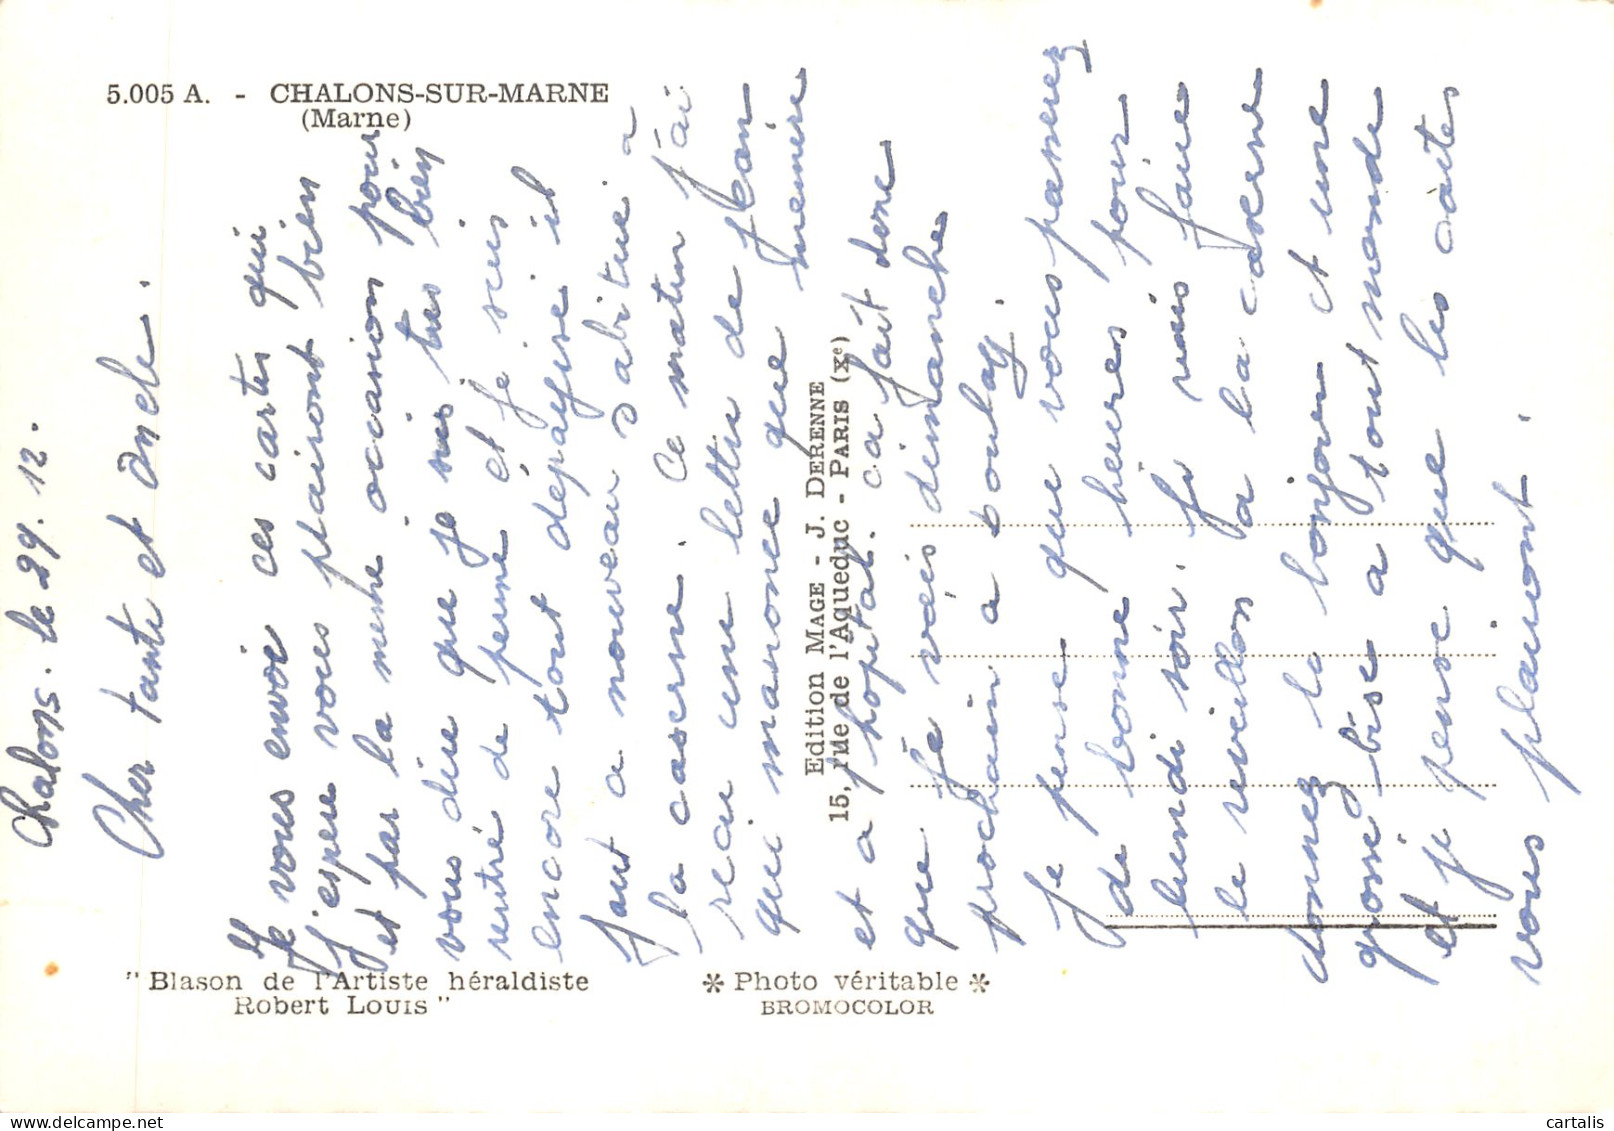 5.005 A. - CHALONS-SUR-MARNE
(Marne)
Chalons. le 29. 12.
Cher tante et oncle.
Je vous envoie ces cartes qui
J'espere vous plairont bien
et par la meme occasion pour
vous dire que je suis tres bien
rentré de perme et je suis
encore tout dépaysé il
faut a nouveau s'abitué a
la caserne. Ce matin j'ai
recu une lettre de Jean
qui m'anonce que memère
et a l'hopital. ca fait donc
que je vais dimanche
prochain a boulay.
Je pense que vous passerez
de bonne heures pour
lundi soir. Je vais faire
le reveillon a la caserne
donnez le bonjour et une
grosse bise a tout monde
et je pense que les cartes
vous plairont.
Edition MAGE - J. DERENNE
15, rue de l'Aqueduc - PARIS (Xe)
" Blason de l'Artiste héraldiste
Robert LOUIS "
* Photo véritable *
BROMOCOLOR
cartalis